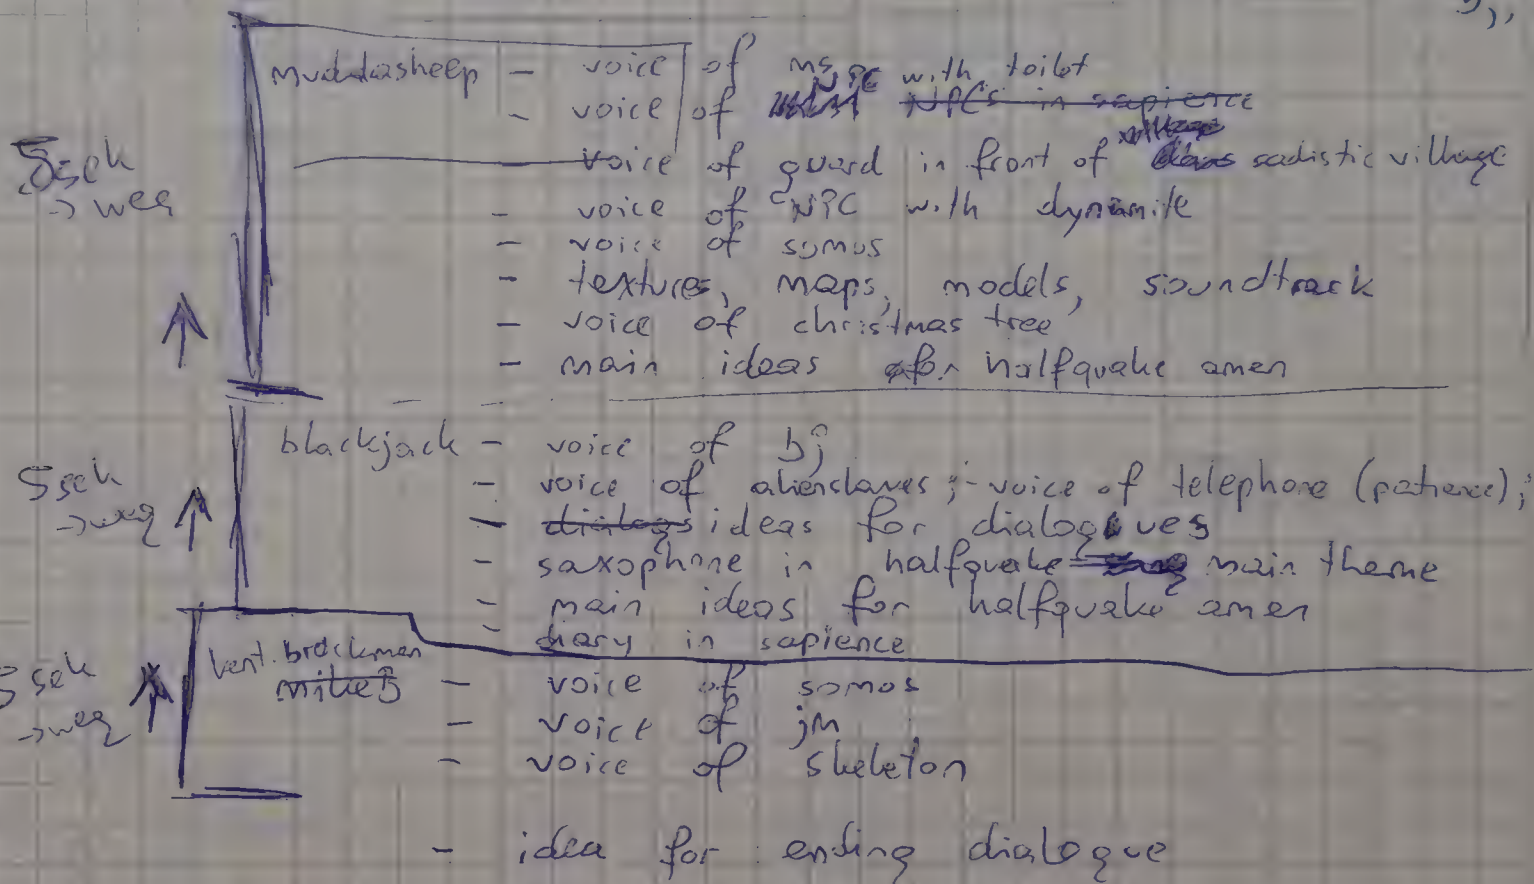 muddasheep - voice of ms
- voice of NPC with toilet
NPCs in sapience
- voice of guard in front of sadistic village
- voice of NPC with dynamite
- voice of somos
- textures, maps, models, soundtrack
- voice of christmas tree
- main ideas for halfquake amen
5sek
→ weg
blackjack - voice of bj
- voice of alienslaves; - voice of telephone (patience);
- dialogs ideas for dialogues
- saxophone in halfquake main theme
- main ideas for halfquake amen
- diary in sapience
5sek
→ weg
kent.brockman
- voice of somos
- voice of jm
- voice of skeleton
5sek
→ weg
- idea for ending dialogue